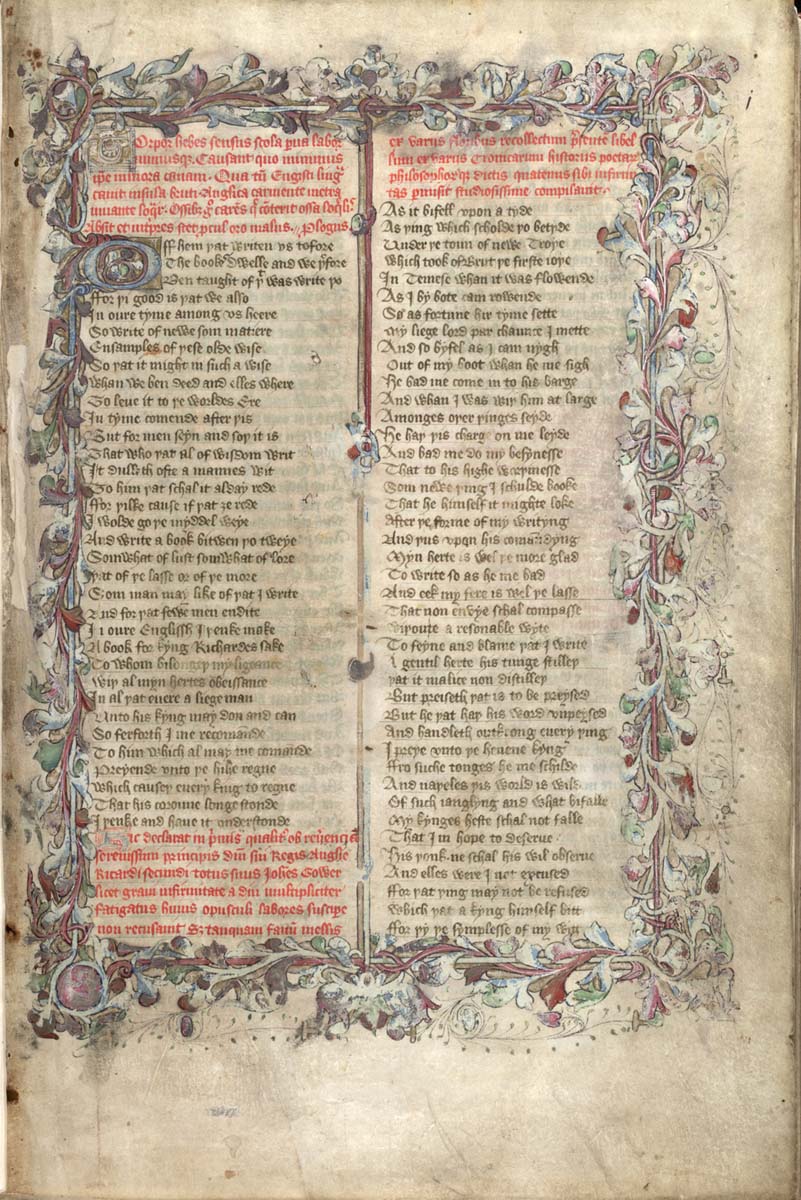 Torpor hebes sensus scola parua labor
minimusqȝ Causant quo minimus
ipe minora canam Qua tn̄ Engisti lingͣ
canit insula bruti Anglica carmente metra
iuuante loqͬ Ossibꝫ gͦ carēs qͥ cōterit ossa loqͥlis
Absit et interp̄s stet pͥcul oro malus Plogus
Off hem þat writen vs tofore
The bookes dwelle and we þfore
Ben taught of þͭ was write þo
ffor þi good is þat we also
In oure tyme among vs heere
So write of newe som matiere
Ensamples of þest olde wise
So þat it might in such a wise
whan we ben deed and elles where
So leue it to þe worldes Ere
In tyme comende after þis
But for men seyn and soþ it is
That who þat al of wisdom writ
It dulleth ofte a mannes wit
To him þat schal it alday rede
ffor þilke cause if þat ȝe rede
I wolde go þe myddel weye
And write a book bitwen þo tweye
Somwhat of lust somwhat of lore
þat of þe lasse or of þe more
Som man may like of þat I write
And for þat fewe men endite
In oure Englissh I þenke make
A book for kyng Richardes sake
To whom bilongeþ my ligeance
wiþ al myn hertes obeissance
In al þat euere a siege man
Unto his kyng may don and can
So ferforth I me recomande
To him which al may me comande
Preyende vnto þe hihe regne
which causeþ euery king to regne
That his corowne longe stonde
I þenke and haue it vnderstonde
Hic declarat in pͥmis qualiť ob reuͤenciā
serenissimi principis dīni sui Regis Anglie
Ricardi secundi totus suus Joħes Gower
licet graui infirmitate a diu multipliciter
fatigatus huius opusculi labores suscipe
non recusauit Sꝫ tanquam fauū mellis
ex variis floribus recollectum p̄sente libel
lum ex variis Cronicarum historiis poetarͫ
philosophorͫqȝ dictis quatenus sibi infirmi
tas permisit studiosissime compilauit
i
As it bifell vpon a tyde
As þing which scholde þo betyde
Under þe toun of newe Troye
Which took of Brut þe firste ioye
In Temese whan it was flowende
As I by bote cam rowende
So as fortune hir tyme sette
My liege lord par chaunce I mette
And so byfel as I cam nygh
Out of my boot whan he me sigh
He bad me come in to his barge
And whan I was wiþ him at large
Amonges oþer þinges seyde
He haþ þis charge on me leyde
And bad me do my besynesse
That to his highe worþinesse
Som newe þing I schulde booke
That he himself it mighte loke
After þe forme of my writyng
And þus vpon his comādyng
Myn herte is wel þe more glad
To write so as he me bad
And eek my fere is wel þe lasse
That non envye schal compasse
wiþoute a resonable wyte
To feyne and blame þat I write
A gentil herte his tunge stilleþ
þat it malice non distilleþ
But preiseth þat is to be preysed
But he þat haþ his word vnpeysed
And handleth outkrong euery þing
I preye vnto þe heuene kyng
ffro suche tonges he me schilde
And naþeles þis world is wilde
Of such iangling and what bifalle
My kynges heste schal not falle
That I in hope to deserue
His þonk ne schal his wil obserue
And elles were I not excused
ffor þat þing may not be refused
Which þat a kyng himself bitt
ffor þy þe symplesse of my witt